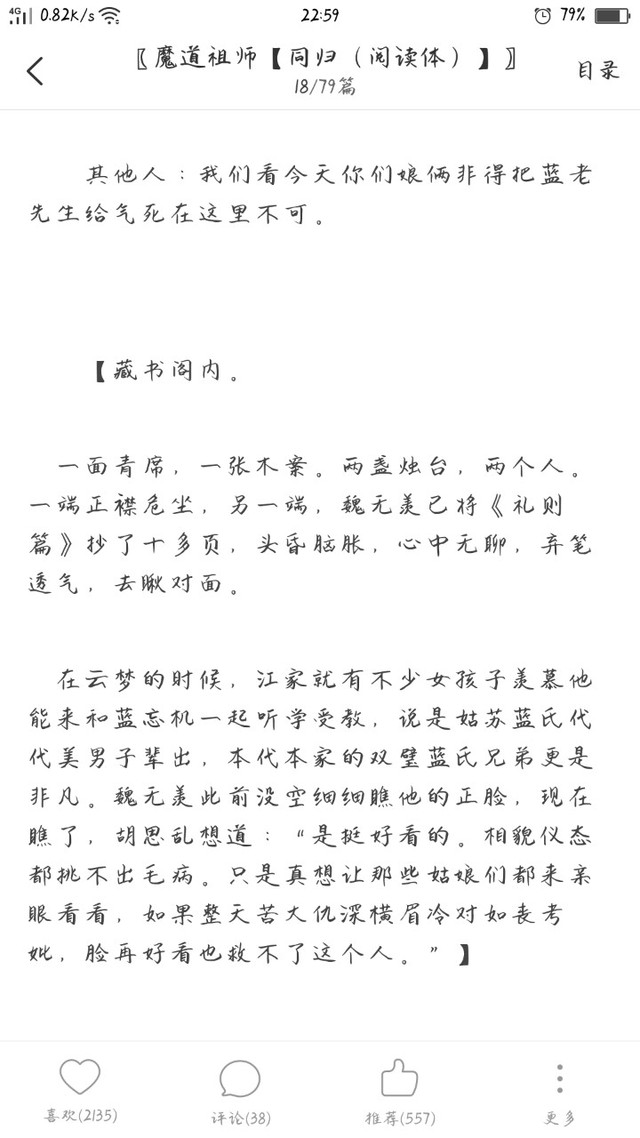 4G 0.82K/s 22:59 79%
〖魔道祖师【同归（阅读体）】〗
18/79篇
目录
其他人：我们看今天你们娘俩非得把蓝老
先生给气死在这里不可。
【藏书阁内。
一面青席，一张木案。两盏烛台，两个人。
一端正襟危坐，另一端，魏无羡已将《礼则
篇》抄了十多页，头昏脑胀，心中无聊，弃笔
透气，去瞅对面。
在云梦的时候，江家就有不少女孩子羡慕他
能来和蓝忘机一起听学受教，说是姑苏蓝氏代
代美男子辈出，本代本家的双璧蓝氏兄弟更是
非凡。魏无羡此前没空细细瞧他的正脸，现在
瞧了，胡思乱想道：“是挺好看的。相貌仪态
都挑不出毛病。只是真想让那些姑娘们都来亲
眼看看，如果整天苦大仇深横眉冷对如丧考
妣，脸再好看也救不了这个人。”】
喜欢(2135)
评论(38)
推荐(557)
更多